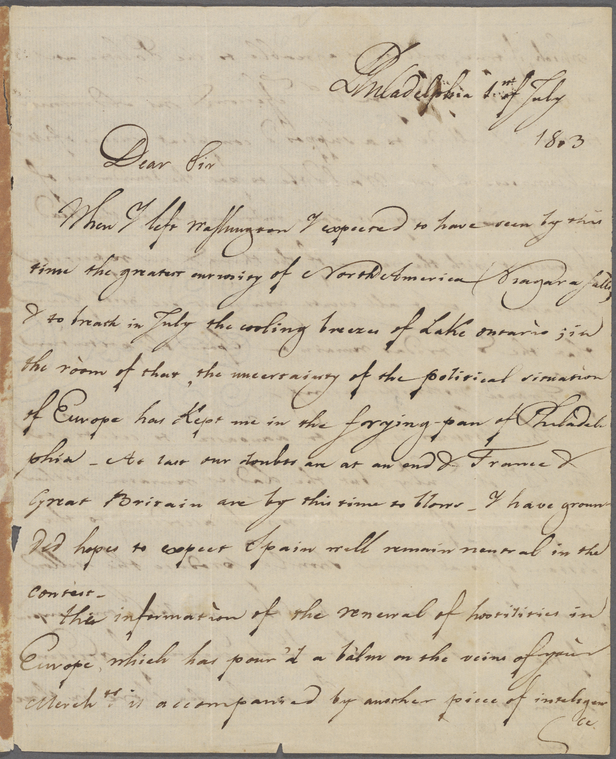 Philadelphia 1st of July
1803
Dear Sir
When I left Washington I expected to have seen by this
time the greatest curiosity of North America (Niagara falls)
& to breath in July the cooling breezes of Lake Ontario; in
the room of that, the uncertainty of the political situation
of Europe has Kept me in the frying-pan of Philadel
phia - At last our doubts are at an end & France &
Great Britain are by this time to blows - I have groun
ded hopes to expect Spain will remain neutral in the
contest -
this information of the renewal of hostilities in
Europe, which has pour'd a balm on the veins of your
Merchts is accompanied by another piece of inteligen
ce.